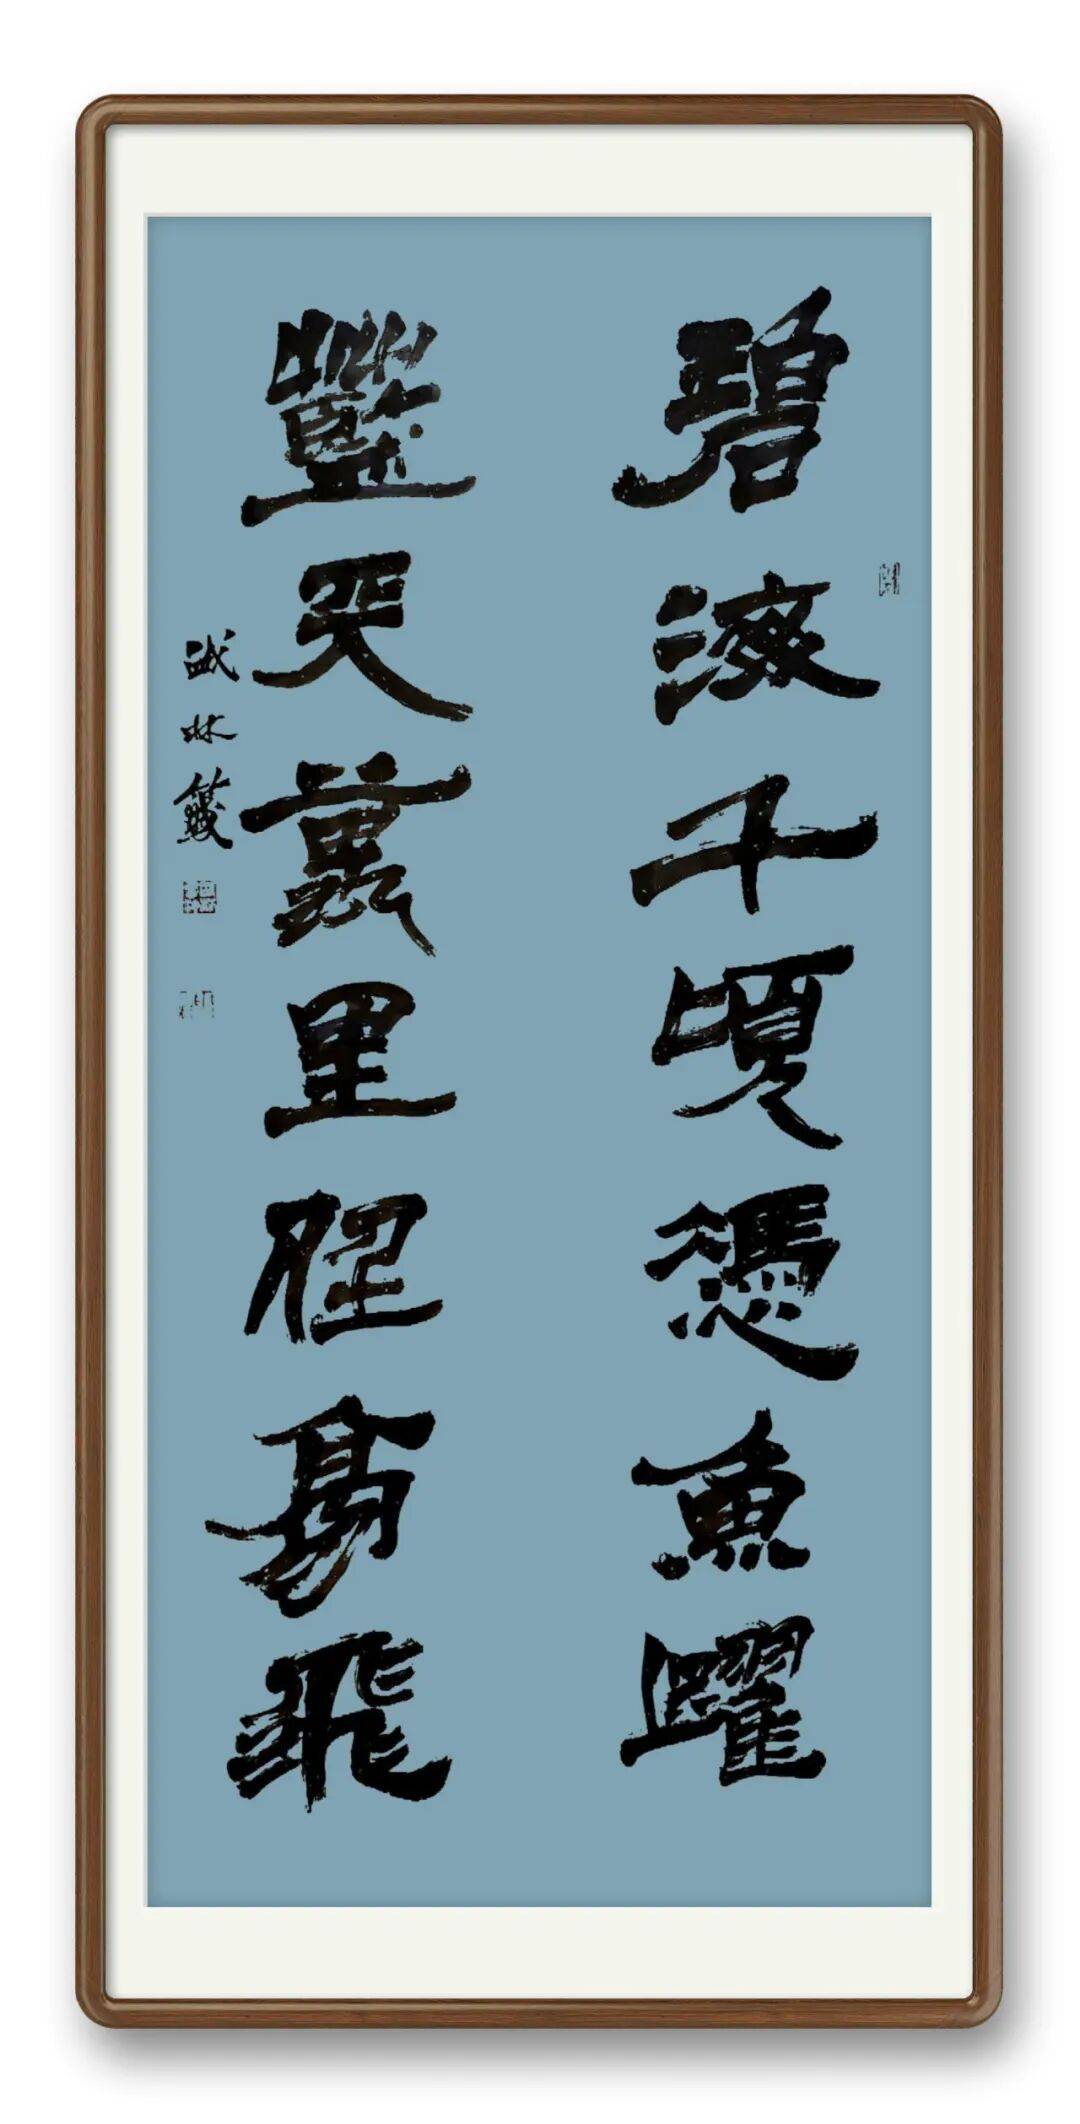 碧海千頃憑魚躍
藍天萬里任鳥飛
林